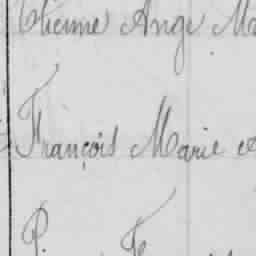 Etienne Ange Ma
François Marie et
P. Fr